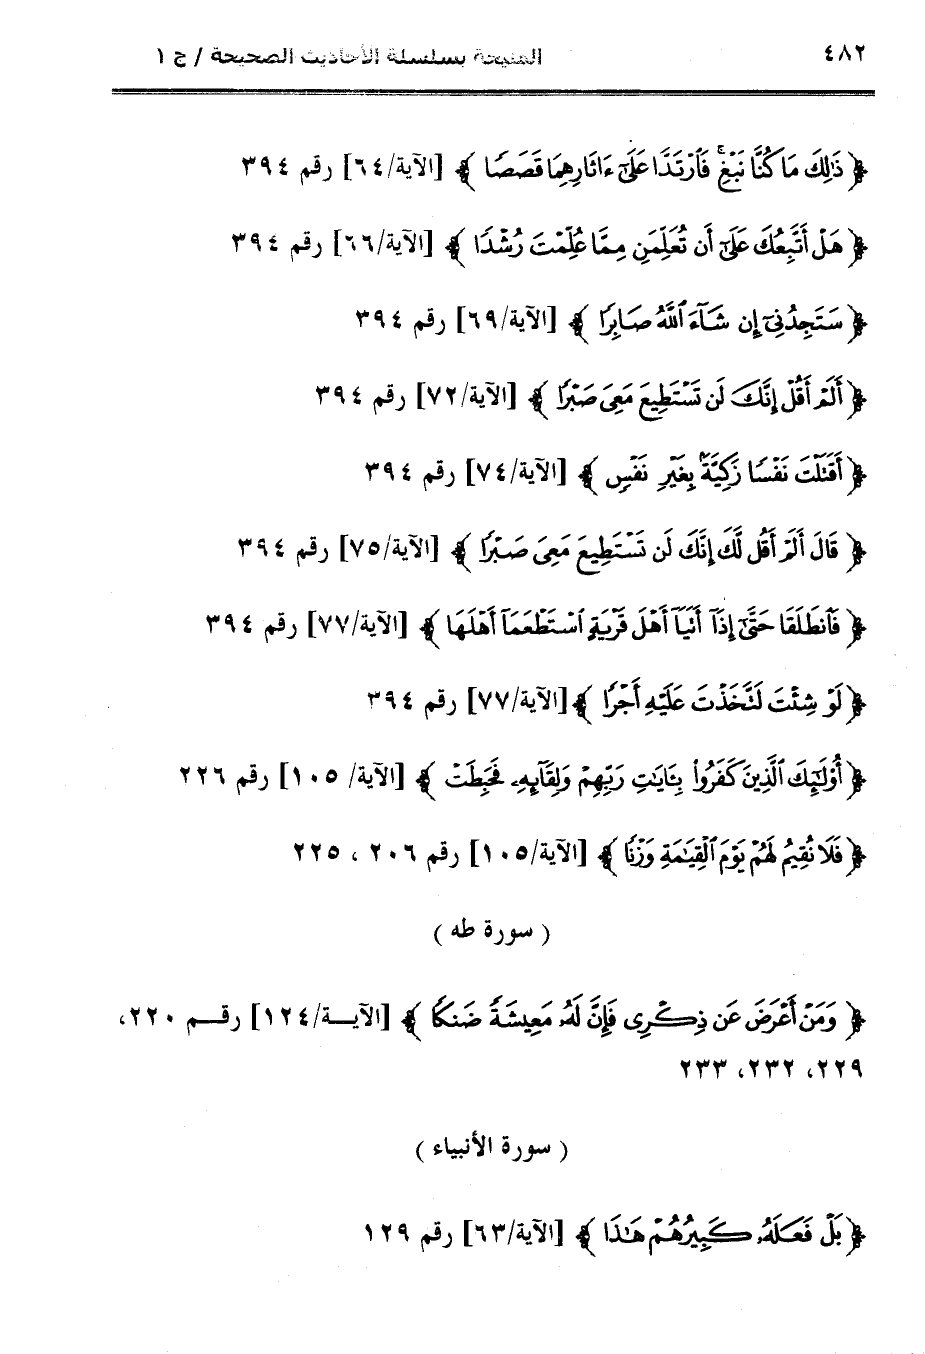 ٤٨٢ المنيحة بسلسلة الأحاديث الصحيحة / ج ١
﴿ ذَٰلِكَ مَا كُنَّا نَبْغِ ۚ فَٱرْتَدَّا عَلَىٰٓ ءَاثَارِهِمَا قَصَصًا ﴾ [الآية/٦٤] رقم ٣٩٤
﴿ هَلْ أَتَّبِعُكَ عَلَىٰٓ أَن تُعَلِّمَنِ مِمَّا عُلِّمْتَ رُشْدًا ﴾ [الآية/٦٦] رقم ٣٩٤
﴿ سَتَجِدُنِىٓ إِن شَآءَ ٱللَّهُ صَابِرًا ﴾ [الآية/٦٩] رقم ٣٩٤
﴿ أَلَمْ أَقُلْ إِنَّكَ لَن تَسْتَطِيعَ مَعِىَ صَبْرًا ﴾ [الآية/٧٢] رقم ٣٩٤
﴿ أَقَتَلْتَ نَفْسًا زَكِيَّةًۢ بِغَيْرِ نَفْسٍ ﴾ [الآية/٧٤] رقم ٣٩٤
﴿ قَالَ أَلَمْ أَقُل لَّكَ إِنَّكَ لَن تَسْتَطِيعَ مَعِىَ صَبْرًا ﴾ [الآية/٧٥] رقم ٣٩٤
﴿ فَٱنطَلَقَا حَتَّىٰٓ إِذَآ أَتَيَآ أَهْلَ قَرْيَةٍ ٱسْتَطْعَمَآ أَهْلَهَا ﴾ [الآية/٧٧] رقم ٣٩٤
﴿ لَوْ شِئْتَ لَتَّخَذْتَ عَلَيْهِ أَجْرًا ﴾ [الآية/٧٧] رقم ٣٩٤
﴿ أُو۟لَٰٓئِكَ ٱلَّذِينَ كَفَرُوا۟ بِـَٔايَٰتِ رَبِّهِمْ وَلِقَآئِهِۦ فَحَبِطَتْ ﴾ [الآية/ ١٠٥] رقم ٢٢٦
﴿ فَلَا نُقِيمُ لَهُمْ يَوْمَ ٱلْقِيَٰمَةِ وَزْنًا ﴾ [الآية/١٠٥] رقم ٢٠٦ ، ٢٢٥
( سورة طه )
﴿ وَمَنْ أَعْرَضَ عَن ذِكْرِى فَإِنَّ لَهُۥ مَعِيشَةً ضَنكًا ﴾ [الآيـــة/١٢٤] رقـــم ٢٢٠،
٢٢٩، ٢٣٢، ٢٣٣
( سورة الأنبياء )
﴿ بَلْ فَعَلَهُۥ كَبِيرُهُمْ هَٰذَا ﴾ [الآية/٦٣] رقم ١٢٩